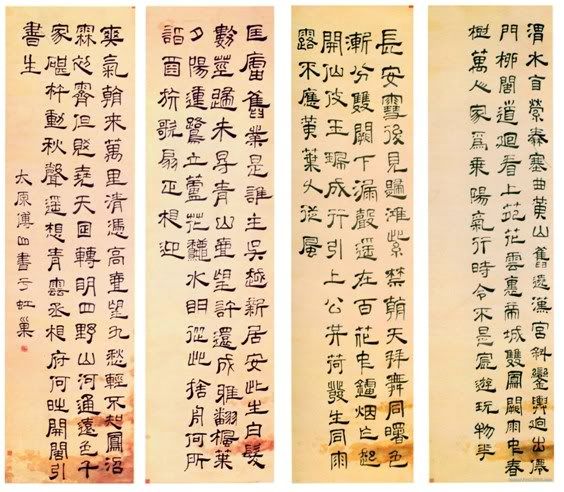 渭水自縈秦塞曲黃山舊遶漢宮斜鑾輿迥出僊
門柳閣道迴看上苑花雲裏帝城雙鳳闕雨中春
樹萬人家為乘陽氣行時令不是宸遊玩物華
長安雪後見歸鴻紫禁朝天拜舞同曙色
漸分雙闕下漏聲遙在百花中鑪烟乍起
開仙仗玉珮成行引上公共荷發生同雨
露不應黃葉久從風
匡廬舊業是誰主吳越新居安此生白髮
數莖歸未得青山一望計還成鴉翻楓葉
夕陽動鷺立蘆花秋水明從此捨舟何所
詣酒旗歌扇正相迎
爽氣朝來萬里清憑高一望九愁輕不知鳳沼
霖初霽但覺堯天日轉明四野山河通遠色千
家砧杵動秋聲遙想青雲丞相府何時開閣引
書生
太原傅山書于虹巢